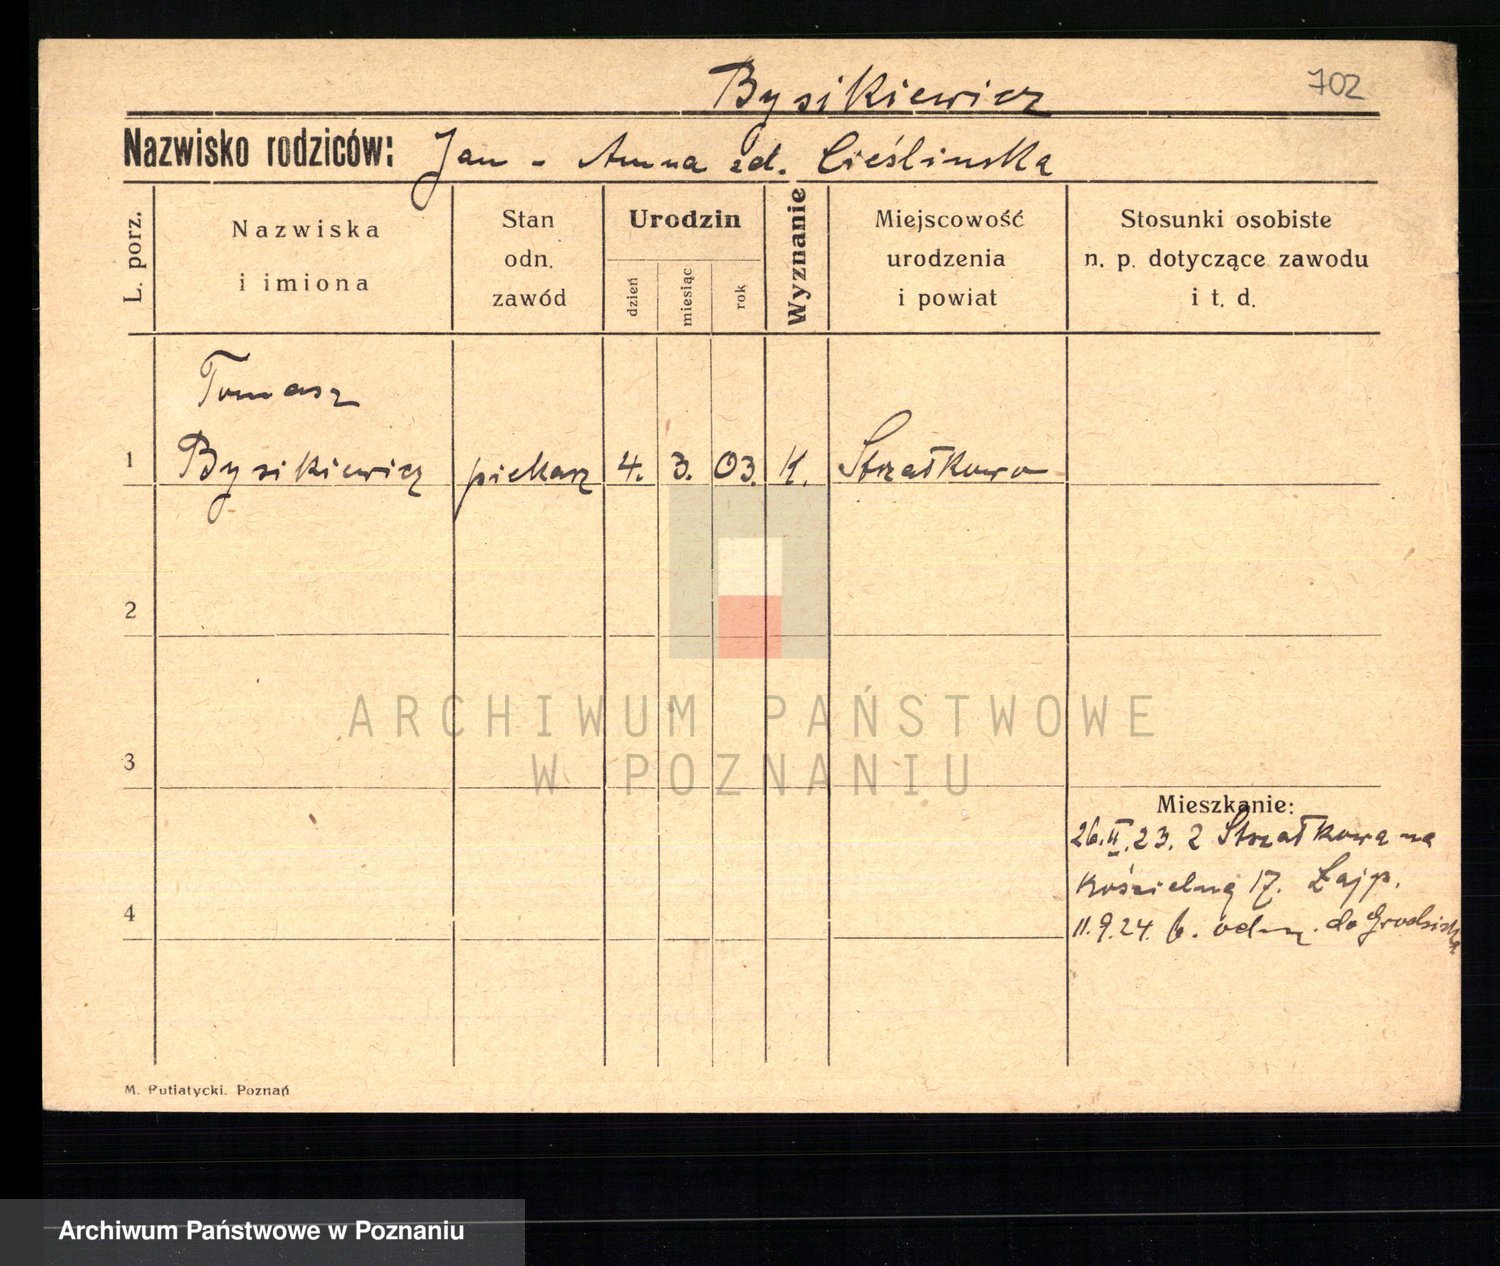 Bysikiewicz 702
Nazwisko rodziców: Jan - Anna zd. Cieślinska
L. porz.
Nazwiska
i imiona
Stan
odn.
zawód
Urodzin
dzień
miesiąc
rok
Wyznanie
Miejscowość
urodzenia
i powiat
Stosunki osobiste
n. p. dotyczące zawodu
i t. d.
Tomasz
1 Bysikiewicz piekarz 4. 3. 03. K. Strzałkowo
2
ARCHIWUM PAŃSTWOWE
W POZNANIU
3
Mieszkanie:
26.II.23. z Strzałkowa na
Kościelną 17. Zajp.
4
11.9.24. odm. do Grodziska
M. Putiatycki. Poznań
Archiwum Państwowe w Poznaniu